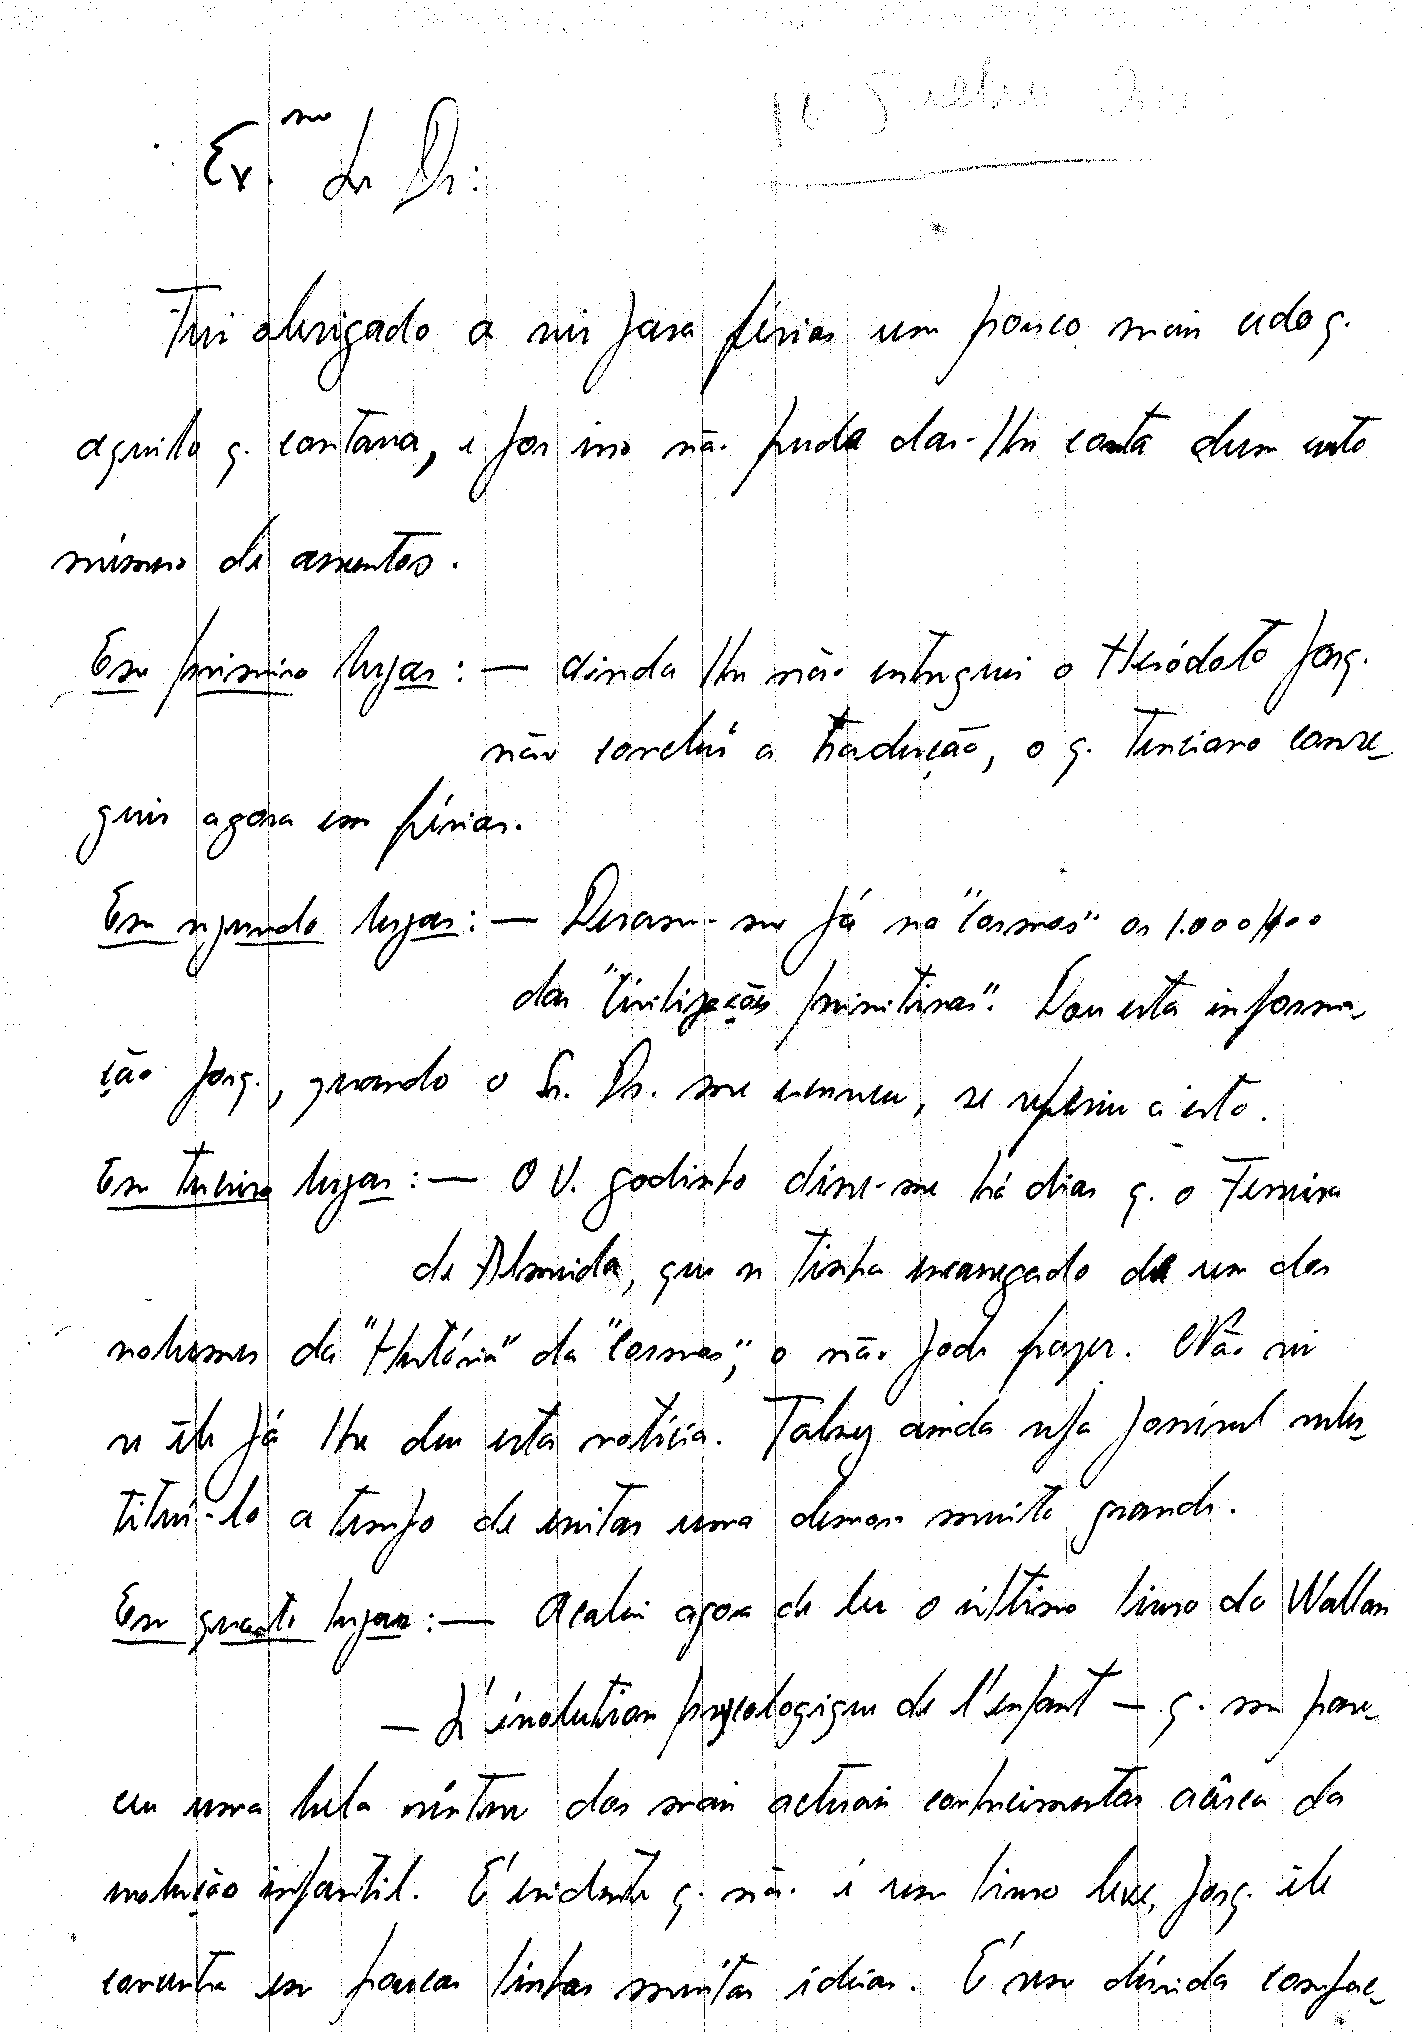 Ex.mo Sr Dr:
Fui obrigado a vir para férias um pouco mais cedo q.
aquilo q. contava, e por isso não pude dar-lhe conta dum certo
número de assuntos.
Em primeiro lugar: — ainda lhe não entreguei o Heródoto porq.
não concluí a tradução, o q. tenciono conse-
guir agora em férias.
Em segundo lugar: — Deram-me já na "Cosmos" os 1.000$00
das "Civilizações primitivas". Dou esta informa-
ção porq., quando o Sr. Dr. me escreveu, se referiu a isto.
Em terceiro lugar: — O V. Godinho disse-me há dias q. o Ferreira
de Almeida, que se tinha encarregado de um dos
volumes da "História" da "Cosmos", o não pode fazer. Não sei
se êle já lhe deu esta notícia. Talvez ainda seja possível subs-
tituí-lo a tempo de evitar uma demora muito grande.
Em quarto lugar: — Acabei agora de ler o último livro do Wallon
— L'évolution psycologique de l'enfant — q. me pare-
ceu uma bela síntese dos mais actuais conhecimentos acêrca da
evolução infantil. É evidente q. não é um livro leve, porq. êle
concentra em poucas linhas muitas ideias. É sem dúvida compac-